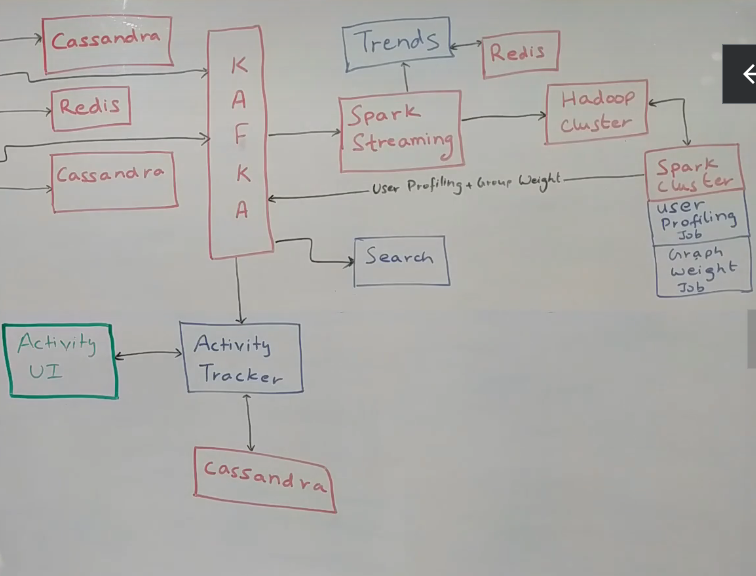 Cassandra
Redis
Cassandra
K
A
F
K
A
Trends
Redis
Spark
Streaming
Hadoop
Cluster
Spark
Cluster
User
Profiling
Job
Graph
Weight
Job
User Profiling + Group Weight
Search
Activity
UI
Activity
Tracker
Cassandra